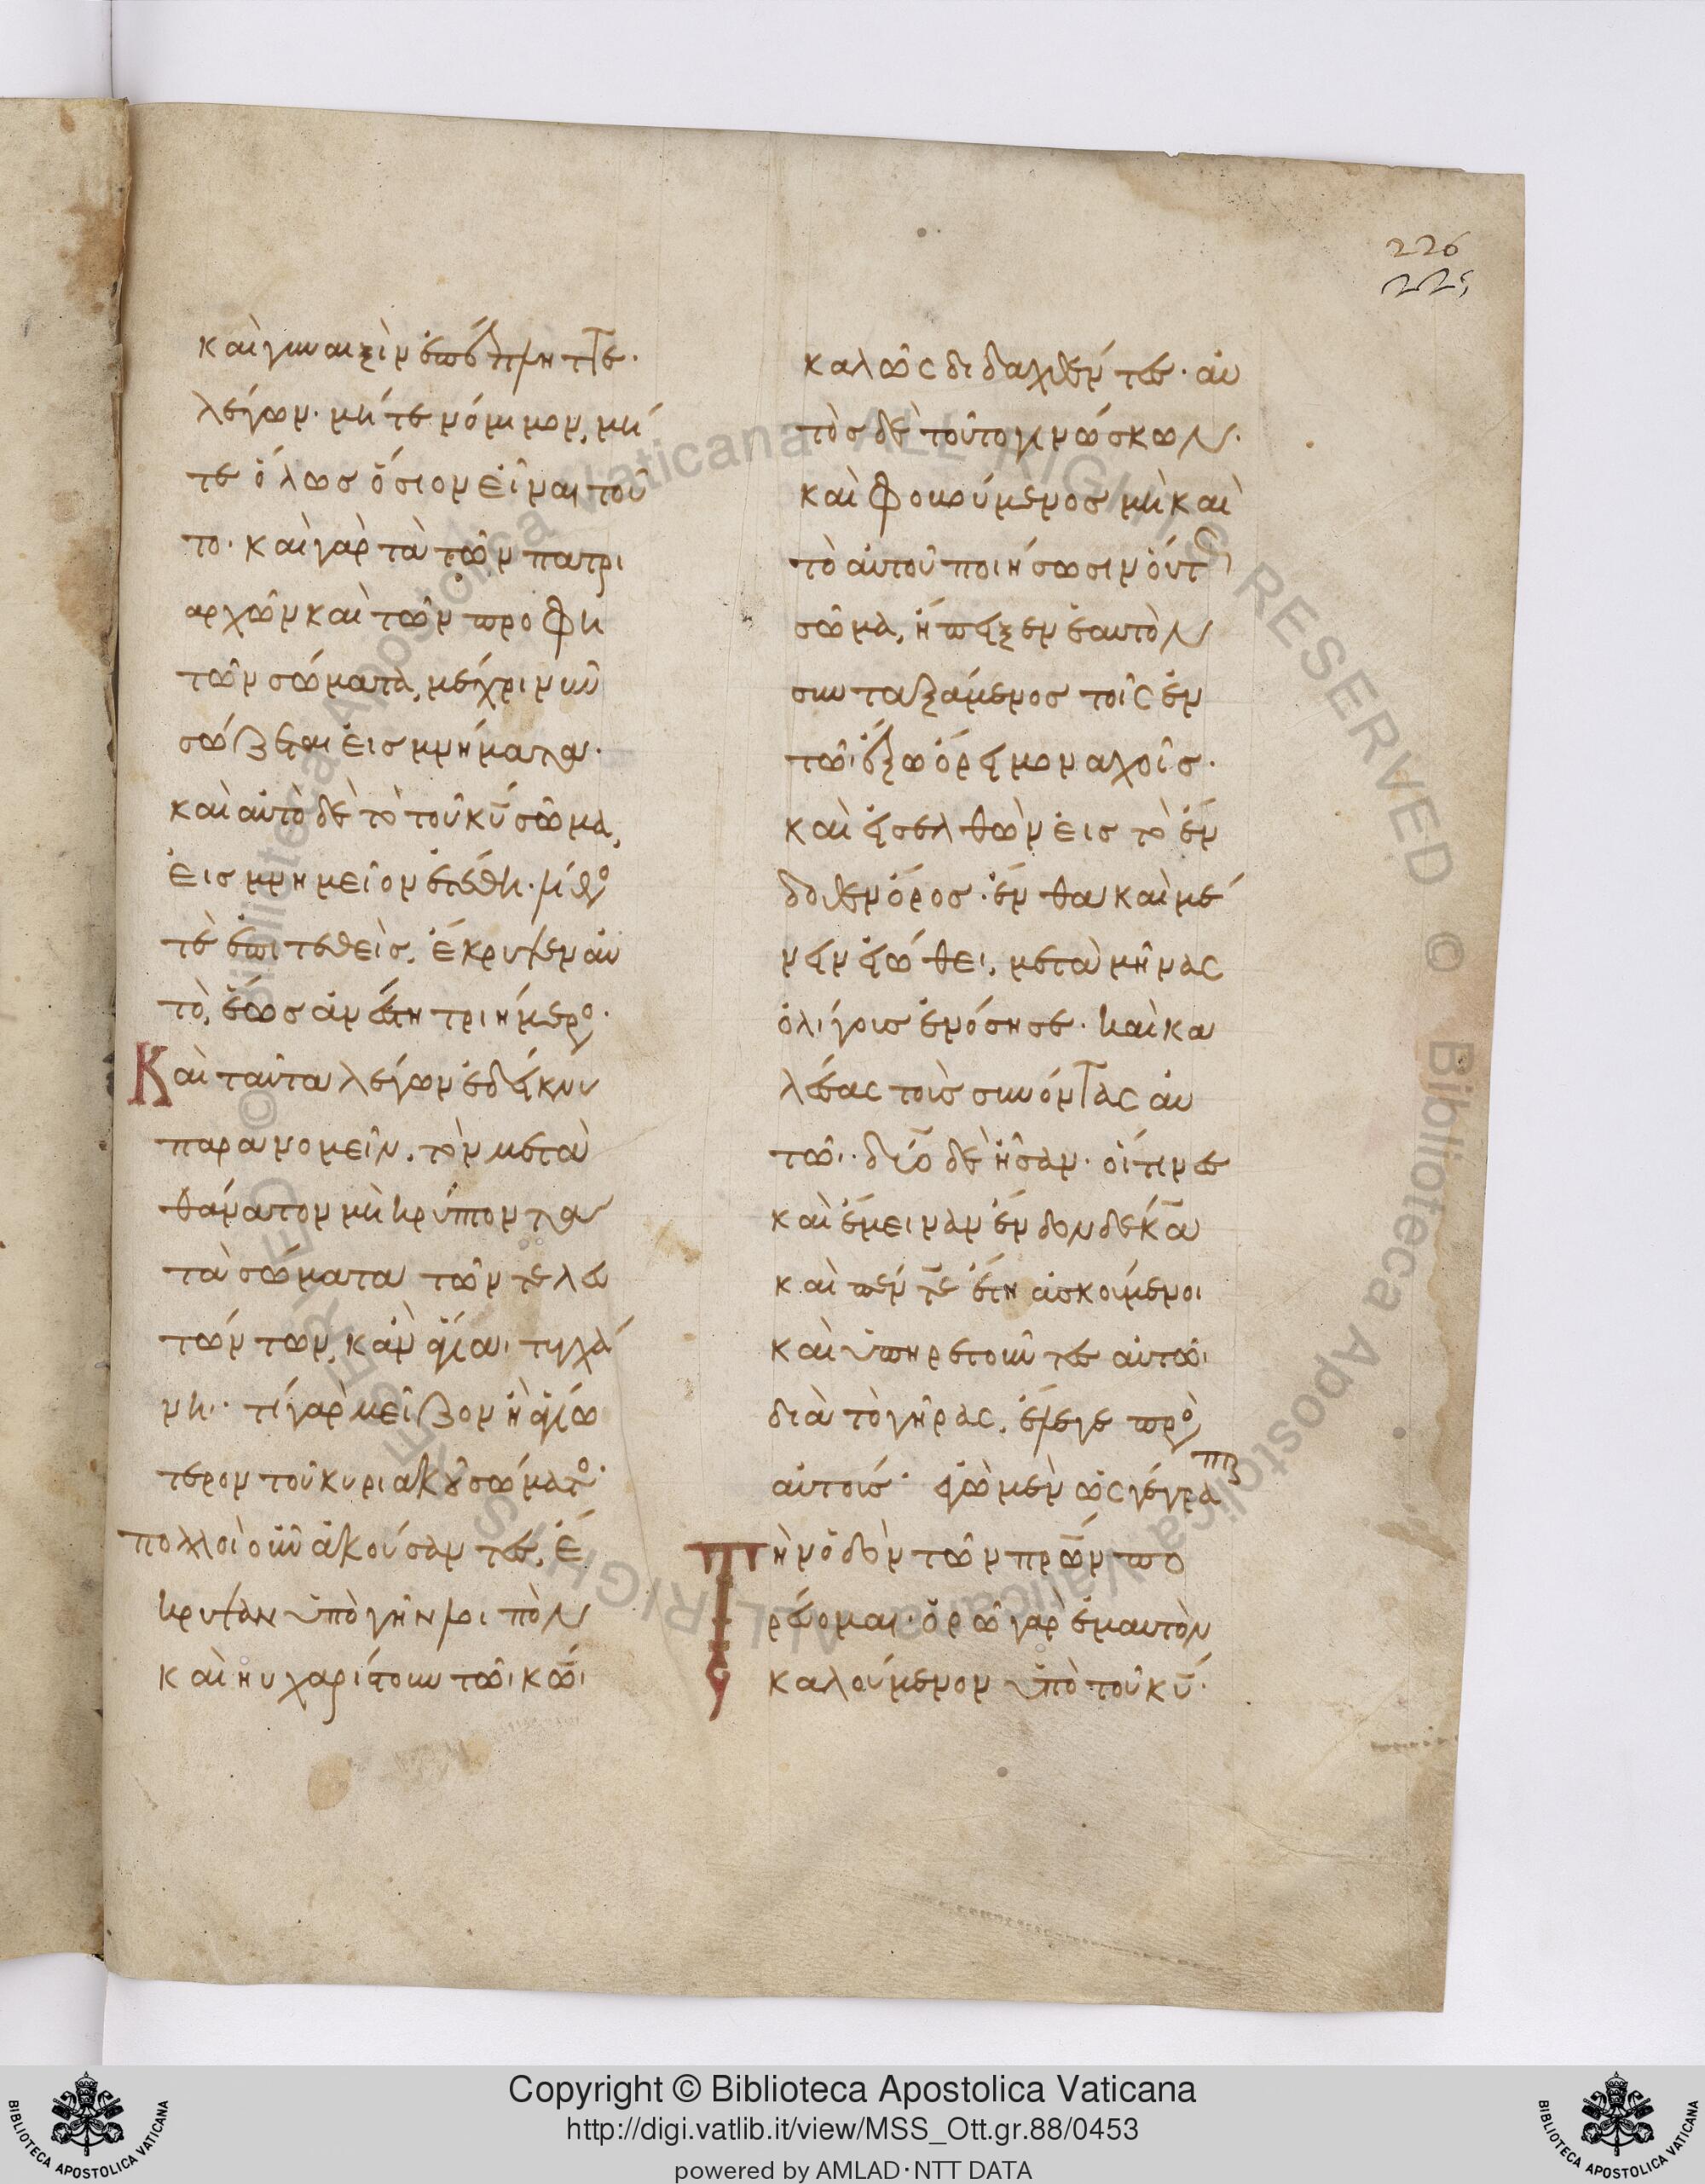 226
225
καὶ γυναιξὶν ἐπέπληττε·
λέγων· μήτε νόμιμον, μή
τε ὅλως ὅσιον εἶναι τοῦ
το· καὶ γὰρ τὰ τῶν πατρι
αρχῶν καὶ τῶν προφη
τῶν σώματα, μέχρι νῦν
σώζεται εἰς μνήματα·
καὶ αὐτὸ δὲ τὸ τοῦ κυ σῶμα,
εἰς μνημεῖον ἐτέθη· λίθο
τε ἐπιτεθεὶς, ἔκρυψεν αὐ
τὸ, ἕως ἀνέστη τριήμερο·
Καὶ ταῦτα λέγων ἐδείκνυ
παρανομεῖν, τὸν μετὰ
θάνατον μὴ κρύπτοντα
τὰ σώματα τῶν τελευ
τώντων, κἂν ἅγια τυγχά
νη· τί γὰρ μεῖζον ἢ ἁγιώ
τερον τοῦ κυριακοῦ σώματο·
πολλοὶ οὖν ἀκούσαντες, ἔ
κρυψαν ὑπὸ γῆν λοιπὸν
καὶ ηὐχαρίστουν τῶ κω
καλῶς διδαχθέντες· αὐ
τὸς δὲ τοῦτο γινώσκων·
καὶ φοβούμενος μὴ καὶ
τὸ αὐτοῦ ποιήσωσιν οὕτ
σῶμα, ἤπειξεν ἑαυτὸν
συνταξάμενος τοῖς ἐν
τῶ ἔξω ὄρει μοναχοῖς·
καὶ εἰσελθὼν εἰς τὸ ἔν
δοθεν ὄρος· ἔνθα καὶ μέ
νειν εἰώθει, μετὰ μῆνας
ὀλίγους ἐνόσησε· καὶ κα
λέσας τοὺς συνόντας αὐ
τῶ· δύο δὲ ἦσαν· οἵτινες
καὶ ἔμειναν ἔνδον δέκα
καὶ πέντε ἔτη ἀσκούμενοι
καὶ ὑπηρετοῦντες αὐτῶ
διὰ τὸ γῆρας, ἔλεγε πρὸ
αὐτούς· ἐγὼ μὲν ὡς γέγρα
πτ
Τὴν ὁδὸν τῶν πρων πο
ρεύομαι· ὁρῶ γὰρ ἐμαυτὸν
καλούμενον ὑπὸ τοῦ κυ·
Copyright © Biblioteca Apostolica Vaticana
http://digi.vatlib.it/view/MSS_Ott.gr.88/0453
powered by AMLAD·NTT DATA
BIBLIOTECA APOSTOLICA VATICANA
BIBLIOTECA APOSTOLICA VATICANA
© Biblioteca Apostolica Vaticana ALL RIGHTS RESERVED
© Biblioteca Apostolica Vaticana ALL RIGHTS RESERVED